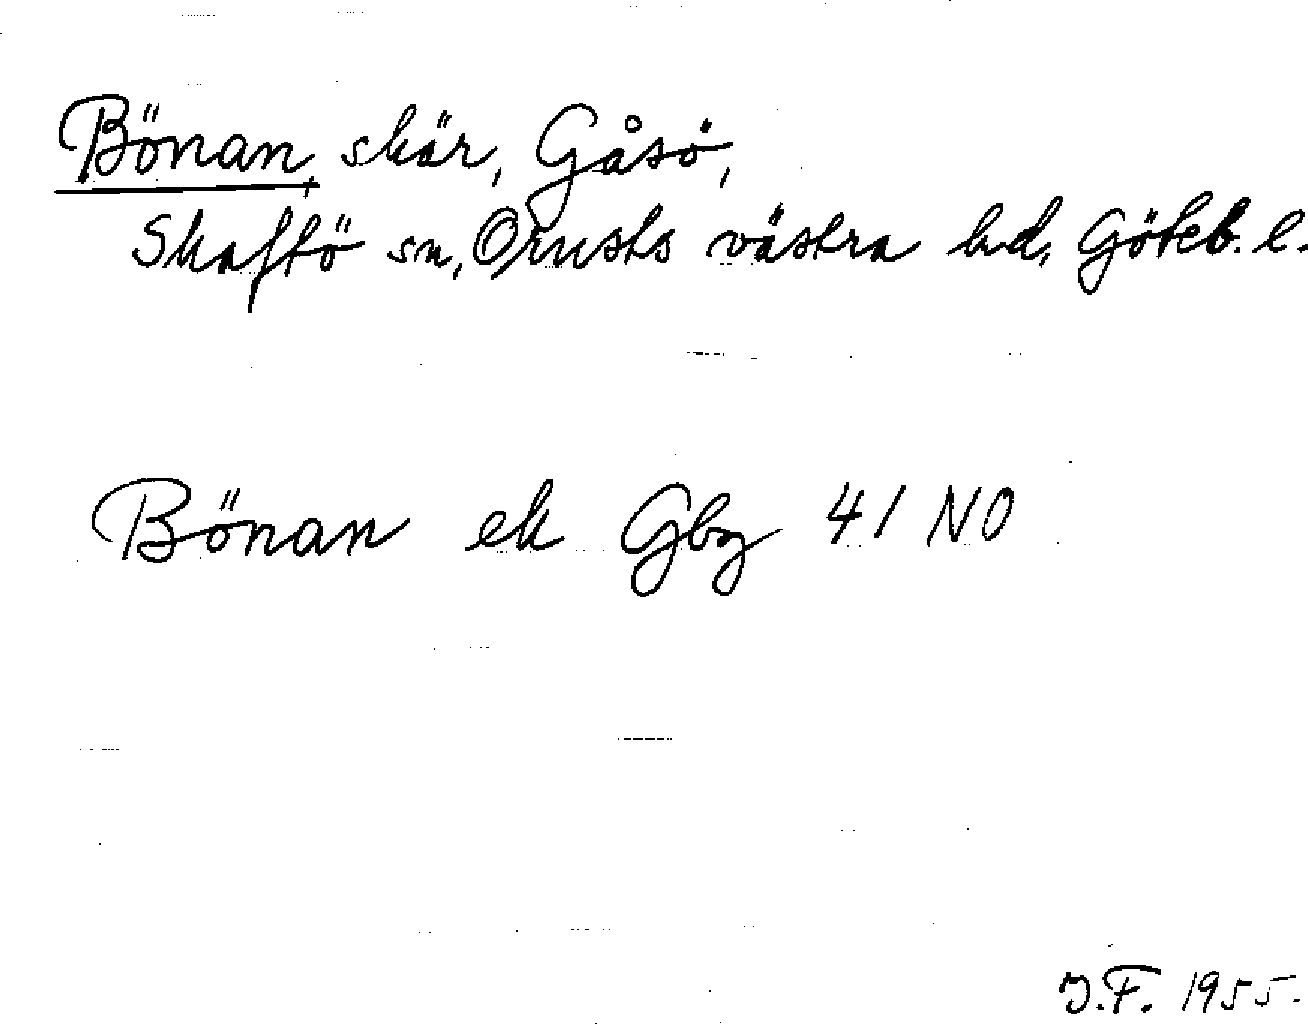 Bönan, skär, Gåsö,
Skaftö sn, Orusts västra hd, Göteb. l.
Bönan ek Gbg 41 NO
J.F. 1955.